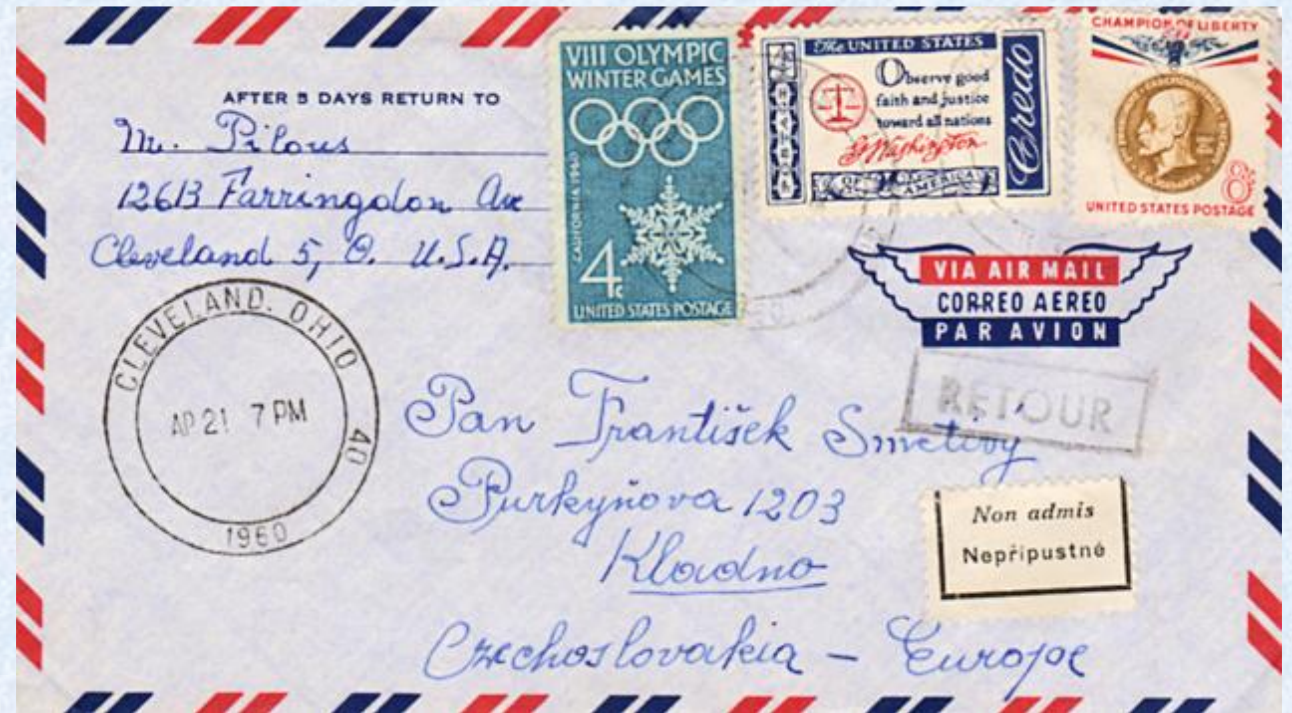 AFTER 5 DAYS RETURN TO
Mr. Pilous
12613 Farringdon Ave
Cleveland 5, O. U.S.A.
CLEVELAND, OHIO 40
AP 21 7 PM
1960
VIII OLYMPIC
WINTER GAMES
CALIFORNIA 1960
4c
UNITED STATES POSTAGE
The UNITED STATES
Observe good
faith and justice
toward all nations
G Washington
OF AMERICA
Credo
CHAMPION OF LIBERTY
8c
UNITED STATES POSTAGE
VIA AIR MAIL
CORREO AEREO
PAR AVION
RETOUR
Pan František Smetivý
Purkyňova 1203
Kladno
Czechoslovakia – Europe
Non admis
Nepřípustné